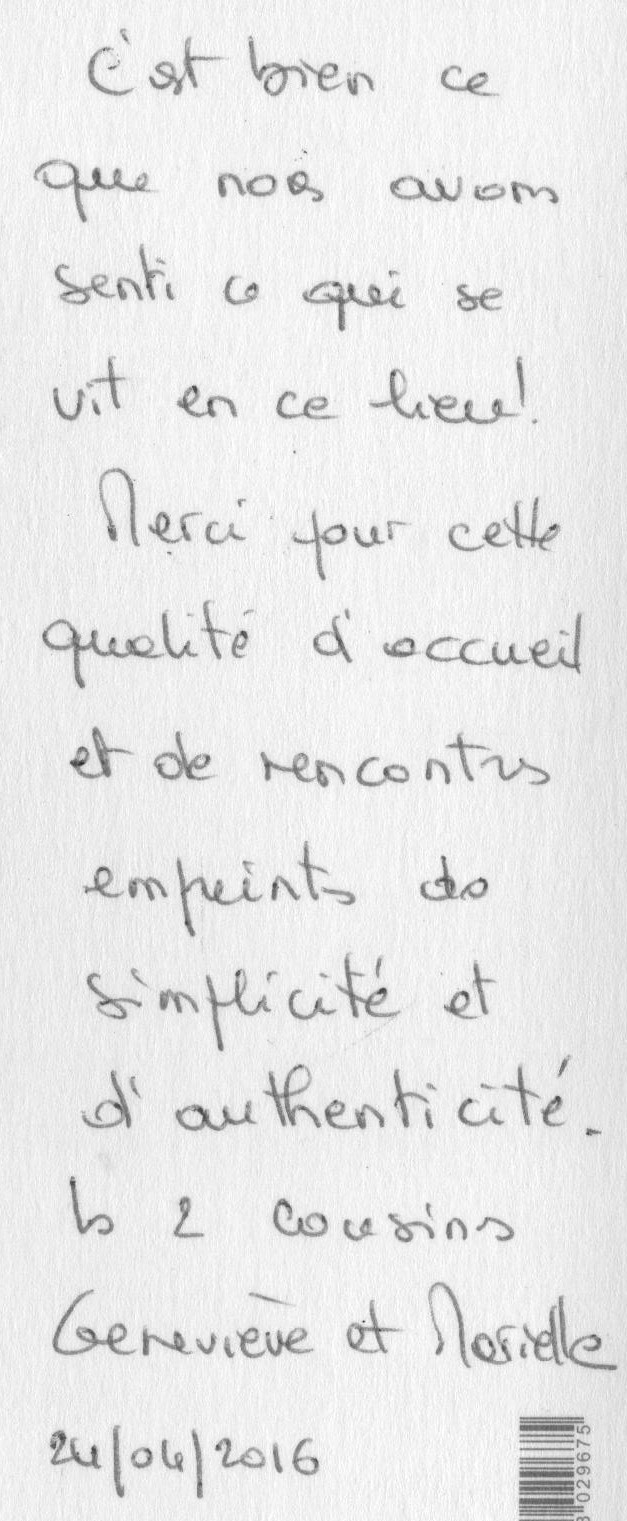 C'est bien ce
que nous avons
senti ce qui se
vit en ce lieu!
Merci pour cette
qualité d'accueil
et de rencontres
empreints de
simplicité et
d'authenticité.
les 2 cousins
Geneviève et Marielle
24/04/2016
029675